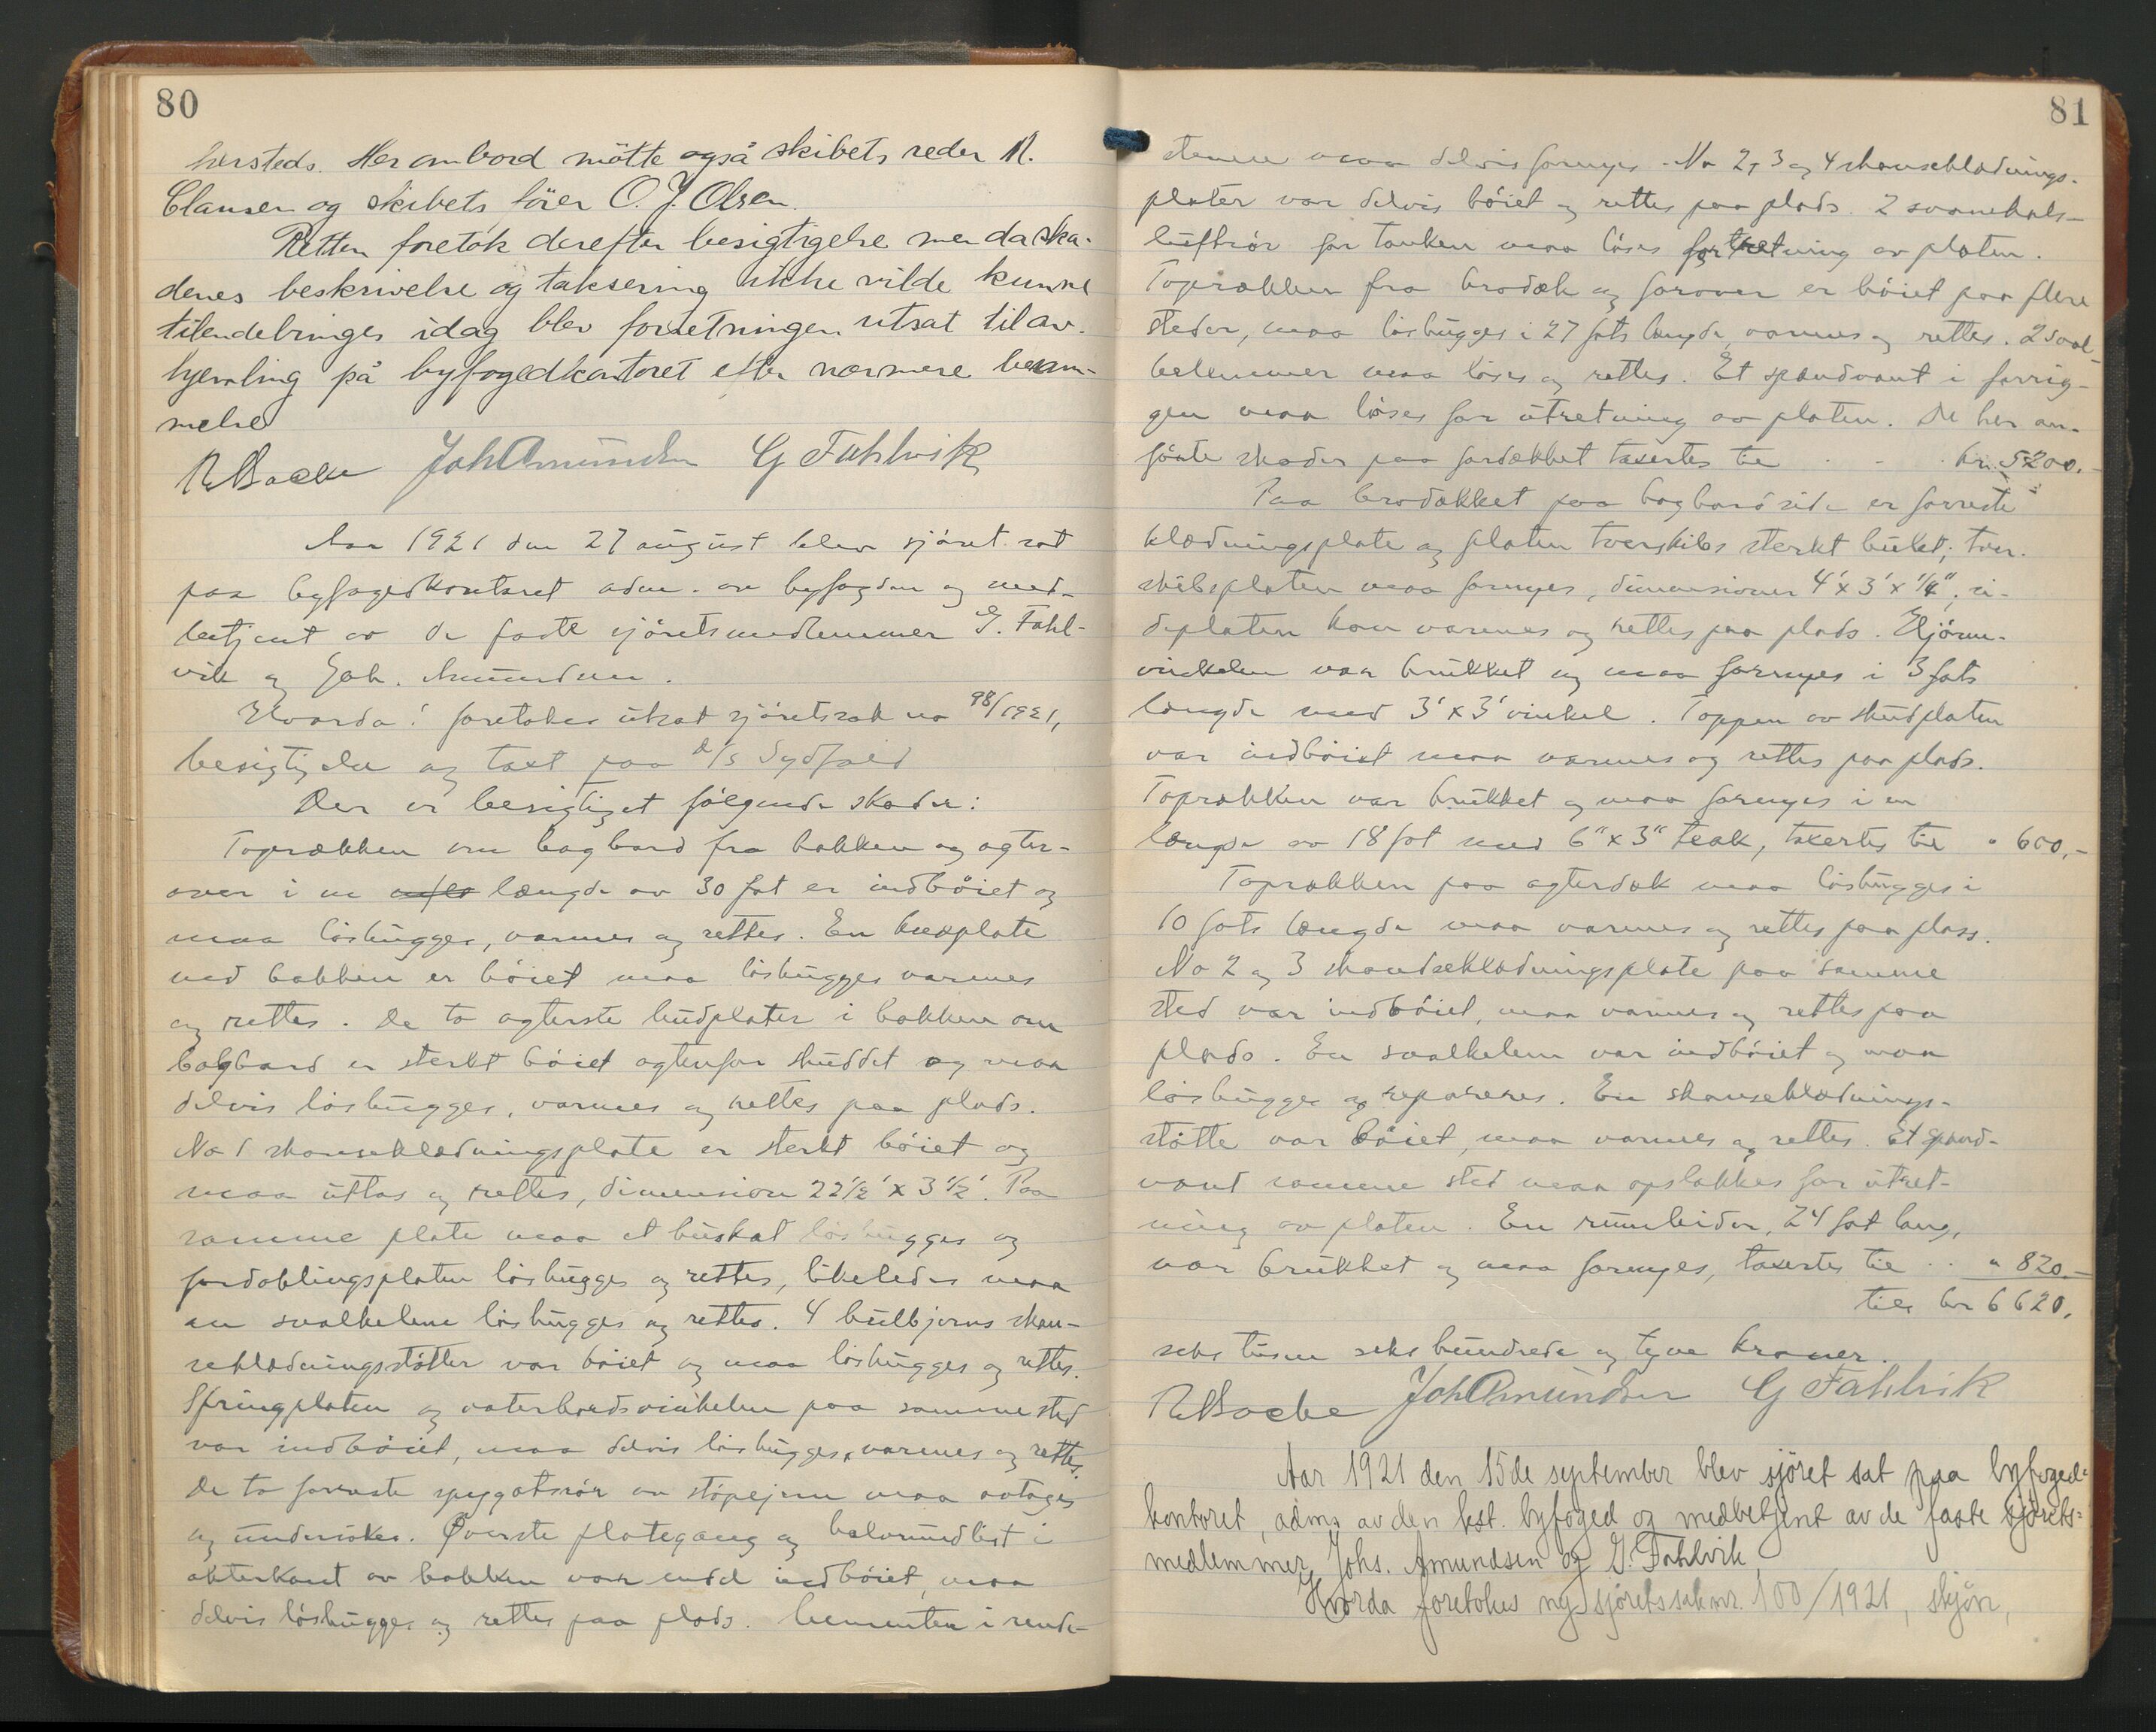 80
hersteds. Her ombord mötte også skibets reder N.
Clausen og skibets förer O. J. Olsen.
Retten foretok derefter besigtigelse men da ska-
denes beskrivelse og taksering ikke vilde kunne
tilendebringes idag blev forretningen utsat til av-
hjemling på byfogedkontoret efter nærmere beram-
melse
Joh Amundsen G Fahlvik
Aar 1921 den 27 august blev sjöret sat
paa byfogedkontoret adm. av byfogden og med-
betjent av de faste sjöretsmedlemmer G. Fahl-
vik og Joh. Amundsen.
Hvorda: foretokes utsat sjöretssak no 98/1921,
besigtigelse og taxt paa d/s Sydfold
Der er besigtiget fölgende skader:
Toprækken om bagbord fra bakken og agter-
over i en længde av 30 fot er indböiet og
maa löshugges, varmes og rettes. En knæplate
ved bakken er böiet maa löshugges varmes
og rettes. De to agterste hudplater i bakken om
bagbord er sterkt böiet agtenfor skuddet og maa
delvis löshugges, varmes og rettes paa plads.
No 1 skanseklædningsplate er sterkt böiet og
maa uttas og rettes, dimension 22½' x 3½'. Paa
samme plate maa et buskat löshugges og
fordoblingsplaten löshugges og rettes, likeledes maa
en svalkelem löshugges og rettes. 4 bulbjerns skan-
seklædningsstötter var böiet og maa löshugges og rettes.
Springplaten og vaterbordsvinkelen paa samme sted
var indböiet, maa delvis löshugges, varmes og rettes.
De to forreste spygatsrör av stöpejern maa avtages
og undersökes. Överste plategang og halvrundlist i
akterkant av bakken var indböiet, maa
delvis löshugges og rettes paa plads. Cementen i rende-
81
stenene maa delvis fornyes. No 2, 3 og 4 skanseklædnings-
plater var delvis böiet og rettes paa plads. 2 svanehals-
luftrör for tanken maa löses for utretning av platen.
Toprækken fra brodæk og forover er böiet paa flere
steder, maa löshugges i 27 fots længde, varmes og rettes. 2 sval-
kelemmer maa löses og rettes. Et spændvant i forrig-
gen maa löses for utretning av platen. De her an-
förte skader paa fordækket taxertes til . . . kr. 5200.-
Paa brodækket paa bagbord side er forreste
klædningsplate og platen tverskibs sterkt bulet; tver-
skibsplaten maa fornyes, dimensioner 4' x 3' x ¼"; si-
deplaten kan varmes og rettes paa plads. Hjörne-
vinkelen var brukket og maa fornyes i 3 fots
længde med 3' x 3' vinkel. Toppen av skudplaten
var indböiet maa varmes og rettes paa plads.
Toprækken var brukket og maa fornyes i en
længde av 18 fot med 6" x 3" teak, taxertes til " 600,-
Toprækken paa agterdæk maa löshugges i
10 fots længde maa varmes og rettes paa plass.
No 2 og 3 skandseklædningsplate paa samme
sted var indböiet, maa varmes og rettes paa
plads. En svalkelem var indböiet og maa
löshugges og repareres. En skanseklædnings-
stötte var böiet, maa varmes og rettes. Et spænd-
vant samme sted maa opslakkes for utret-
ning av platen. En rumleider, 24 fot lang,
var brukket og maa fornyes, taxertes til . . " 820.-
tils kr 6620.
seks tusen seks hundrede og tyve kroner.
Joh Amundsen G Fahlvik
Aar 1921 den 15de september blev sjöret sat paa byfoged-
kontoret, adms av den kst. byfoged og medbetjent av de faste sjörets-
medlemmer Johs. Amundsen og G. Fahlvik
Hvorda foretokes ny sjöretssak nr. 100/1921, skjön,